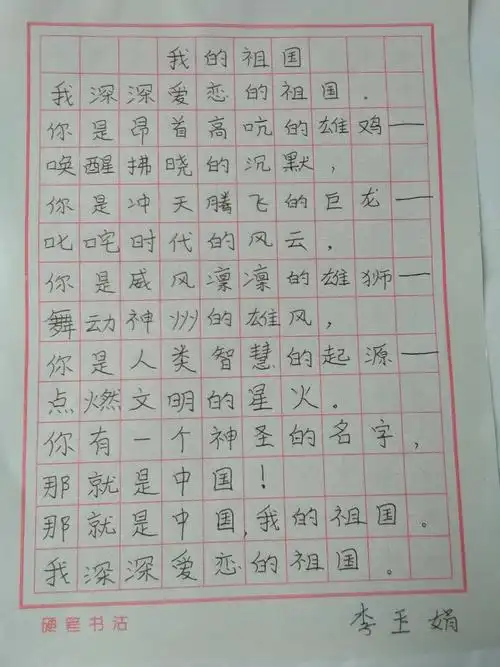 我的祖国
我深深爱恋的祖国.
你是昂首高吭的雄鸡——
唤醒拂晓的沉默,
你是冲天腾飞的巨龙——
叱咤时代的风云,
你是威风凛凛的雄狮——
舞动神州的雄风,
你是人类智慧的起源——
点燃文明的星火。
你有一个神圣的名字,
那就是中国!
那就是中国,我的祖国。
我深深爱恋的祖国。
硬笔书法
李玉娟